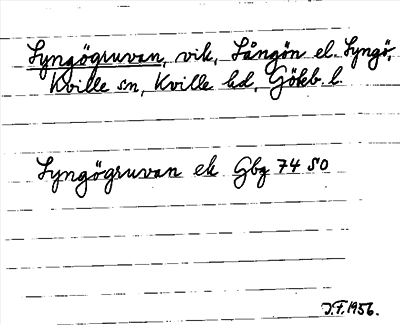 Lyngögruvan, vik, Långön el. Lyngö,
Kville sn, Kville hd, Gökb. l.
Lyngögruvan ek Gbg 74 SO
J.F. 1956.